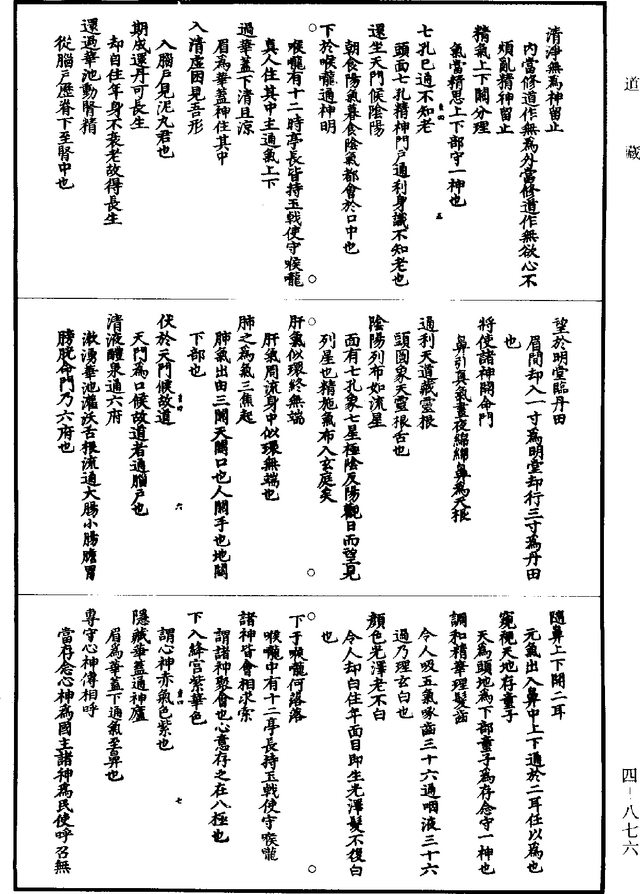 道藏
清淨無為神留止
內當修道作無為外當修道作無欲心不
煩亂精神留止
精氣上下關分理
氣當精思上下部守一神也
七孔已通不知老
頭面七孔精神門戶通利身識不知老也
還坐天門候陰陽
朝食陽氣暮食陰氣都會於口中也
下於喉嚨通神明
喉嚨有十二時亭長皆持玉戟使守喉嚨
真人住其中主通氣上下
過華蓋下清且涼
眉為華蓋神住其中
入清虛困見吾形
入腦戶見泥丸君也
期成還丹可長生
却自住年身不衰老故得長生
還過華池動腎精
從腦戶歷脊下至腎中也
五
望於明堂臨丹田
眉間却入一寸為明堂却行三寸為丹田
也
將使諸神開命門
鼻引真氣晝夜綿綿鼻為天根
通利天道藏靈根
頭圓象天靈根舌也
陰陽列布如流星
面有七孔象七星極陰反陽觀日而望見
列星也精施氣布入玄庭矣
肝氣似環終無端
肝氣周流身中似環無端也
肺之為氣三焦起
肺氣出由三關天關口也人關手也地關
下部也
伏於天門候故道
天門為口候故道者通腦戶也
清液醴泉通六府
漱湧華池灌沃舌根流通大腸小腸膽胃
膀胱命門乃六府也
六
隨鼻上下開二耳
元氣出入鼻中上下通於二耳任以為也
窺視天地存童子
天為頭地為下部童子為存念守一神也
調和精華理髮齒
令人吸五氣啄齒三十六過咽液三十六
過乃理玄白也
顏色光澤老不白
令人却白住年面目即生光澤髮不復白
也
下于喉嚨何落落
喉嚨中有十二亭長持玉戟使守喉嚨
諸神皆會相求索
謂諸神聚會也心意存之在八極也
下入絳宮紫華色
謂心神赤氣色紫也
隱藏華蓋通神廬
眉為華蓋下通氣至鼻也
專守心神傳相呼
當存念心神為國主諸神為民使呼召無
七
四-八七六